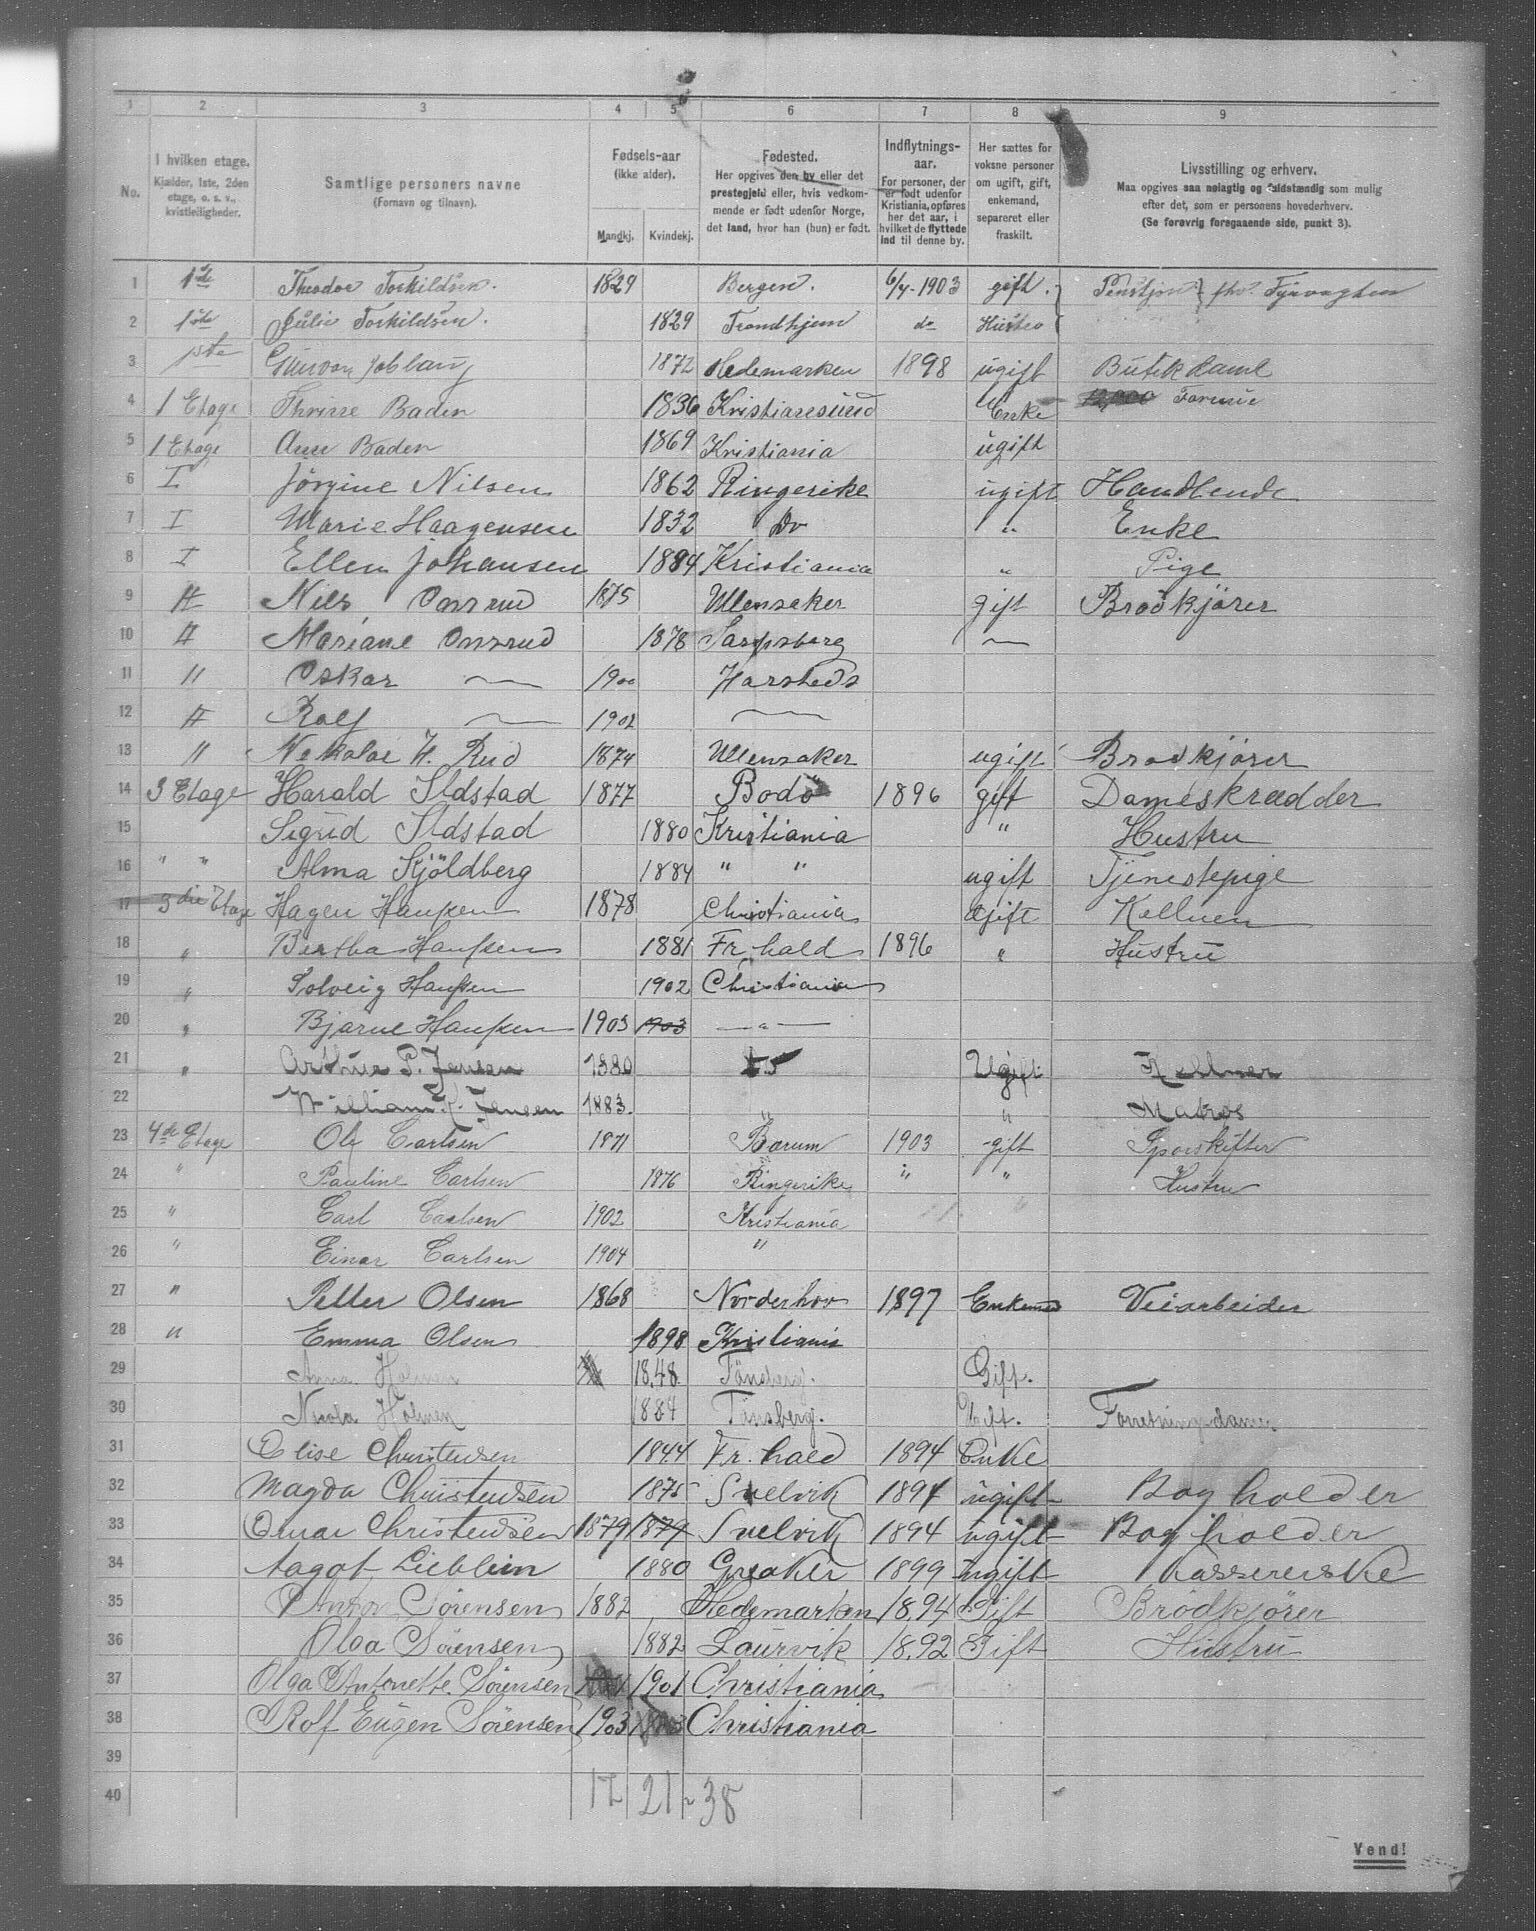 1 2 3 4 5 6 7 8 9
No.
I hvilken etage.
Kjælder, 1ste, 2den
etage, o. s. v.,
kvistleiligheder.
Samtlige personers navne
(Fornavn og tilnavn).
Fødsels-aar
(ikke alder).
Mandkj. Kvindekj.
Fødested.
Her opgives den by eller det
prestegjeld eller, hvis vedkom-
mende er født udenfor Norge,
det land, hvor han (hun) er født.
Indflytnings-
aar.
For personer, der
er født udenfor
Kristiania, opføres
her det aar, i
hvilket de flyttede
ind til denne by.
Her sættes for
voksne personer
om ugift, gift,
enkemand,
separeret eller
fraskilt.
Livsstilling og erhverv.
Maa opgives saa nøiagtig og fuldstændig som mulig
efter det, som er personens hovederhverv.
(Se forøvrig foregaaende side, punkt 3).
1 1ste Theodor Torkildsen. 1829 Bergen. 6/4-1903 gift. fhv.
2 1ste Julie Torkildsen. 1829 Trondhjem do Hustro
3 1ste 1872 Hedemarken 1898 ugift Butikdame
4 1 Etage Baden 1836 Kristiansund Enke 12,000 Formue
5 1 Etage Baden 1869 Kristiania ugift
6 I Jörgine Nilsen 1862 Ringerike ugift Handlende
7 I Marie Haagensen 1832 Do " Enke
8 I Ellen Johansen 1884 Kristiania " Pige
9 II Nils Onsrud 1875 Ullensaker gift Brödkjörer
10 II Mariane Onsrud 1878 Sarpsborg —
11 " Oskar — 1900
12 II Rolf — 1902 —
13 " H. Rud 1874 Ullensaker ugift Brödkjörer
14 3 Etage Harald Ildstad 1877 Bodö 1896 gift Dameskrædder
15 Sigrid Ildstad 1880 Kristiania " Hustru
16 " " Alma Skjöldberg 1884 " " ugift Tjenestepige
17 3die Etage Hagen Hansen 1878 Christiania Gift Kellner
18 " Bertha Hansen 1881 Fr.hald 1896 " Hustru
19 " Solveig Hansen 1902 Christiania
20 " Bjarne Hansen 1903 1903 — " —
21 " Arthur P. Jensen 1880 Do Ugift Kellner
22 William K. Jensen 1883. " " Matros
23 4de Etage Ole Carlsen 1871 Bærum 1903 gift Sporskifter
24 " Pauline Carlsen 1876 Ringerike " " Hustru
25 " Carl Carlsen 1902 Kristiania
26 " Einar Carlsen 1904 "
27 " Petter Olsen 1868 Norderhov 1897 Enkemand Veiarbeider
28 " Emma Olsen 1898 Kristiania
29 Anna Holmen 1848 Tönsberg. Gift.
30 Holmen 1884 Tönsberg. Ugift. Forretningsdame.
31 Elise Christensen 1844 Fr.hald 1894 Enke
32 Magda Christensen 1875 Svelvik 1894 ugift Bogholder
33 Christensen 1879 1879 Svelvik 1894 ugift Bogholder
34 Aagot Lieblein 1880 Greaker 1899 ugift Kassererske
35 Anton Sörensen 1882 Hedemarken 1894 Gift Brödkjörer
36 Olga Sörensen 1882 Laurvik 1892 Gift Hustru
37 Olga Antonette Sörensen 1901 Christiania
38 Rolf Eugen Sörensen 1903 Christiania
39
40 17 21 - 38
Vend!